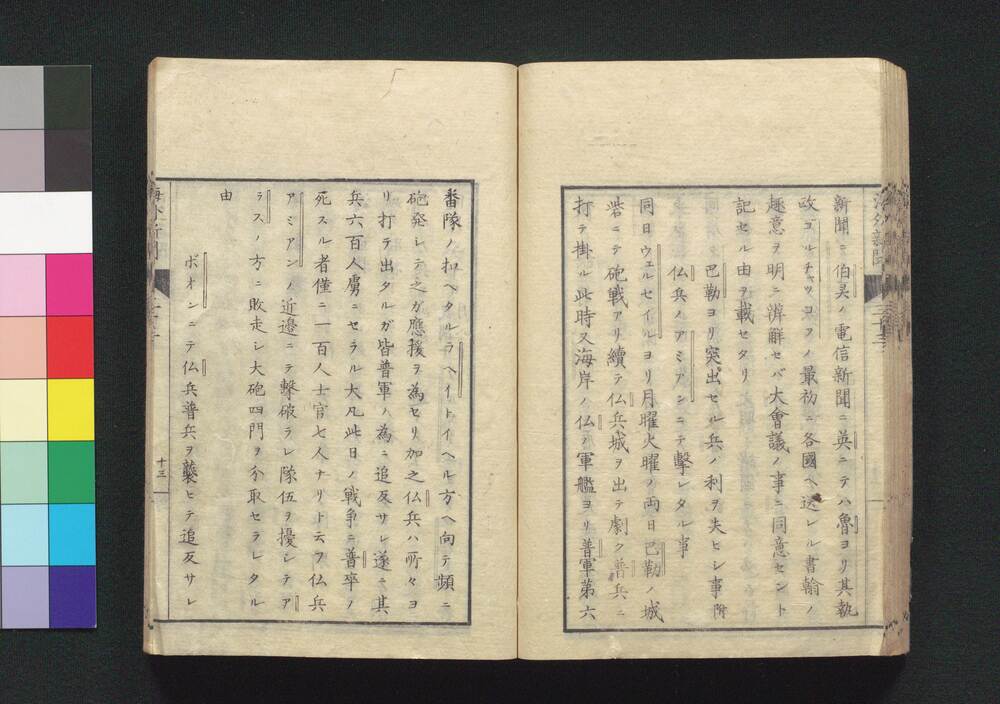 新聞ニ伯灵ノ電信新聞ニ英ニテハ魯ヨリ其執
政ゴルチャッコフノ最初ニ各國ヘ送レル書翰ノ
趣意ヲ明ニ辨解セバ大會議ノ事ニ同意セント
記セル由ヲ載セタリ
巴勒ヨリ突出セル兵ノ利ヲ失ヒシ事附
仏兵ノアミアンニテ擊レタル事
同日ウェルセイルヨリ月曜火曜ノ両日巴勒ノ城
砦ニテ砲戦アリ續テ仏兵城ヲ出テ劇ク普兵ニ
打テ掛ル此時又海岸ハ仏ノ軍艦ヨリ普軍第六
番隊ノ扣ヘタルラヘイトイヘル方ヘ向テ頻ニ
砲発レテ之ガ應援ヲ為セリ加之仏兵ハ所々ヨ
リ打テ出タルガ皆普軍ノ為ニ追反サレ遂ニ其
兵六百人虜ニセラル大凡此日ノ戦争ニ普卒ノ
死スル者僅ニ一百人士官七人ナリト云フ仏兵
アミアンノ近邉ニテ擊破ラレ隊伍ヲ擾シテア
ラスノ方ニ敗走シ大砲四門ヲ分取セラレタル
由
ボオンニテ仏兵普兵ヲ襲ヒテ追反サレ
十三